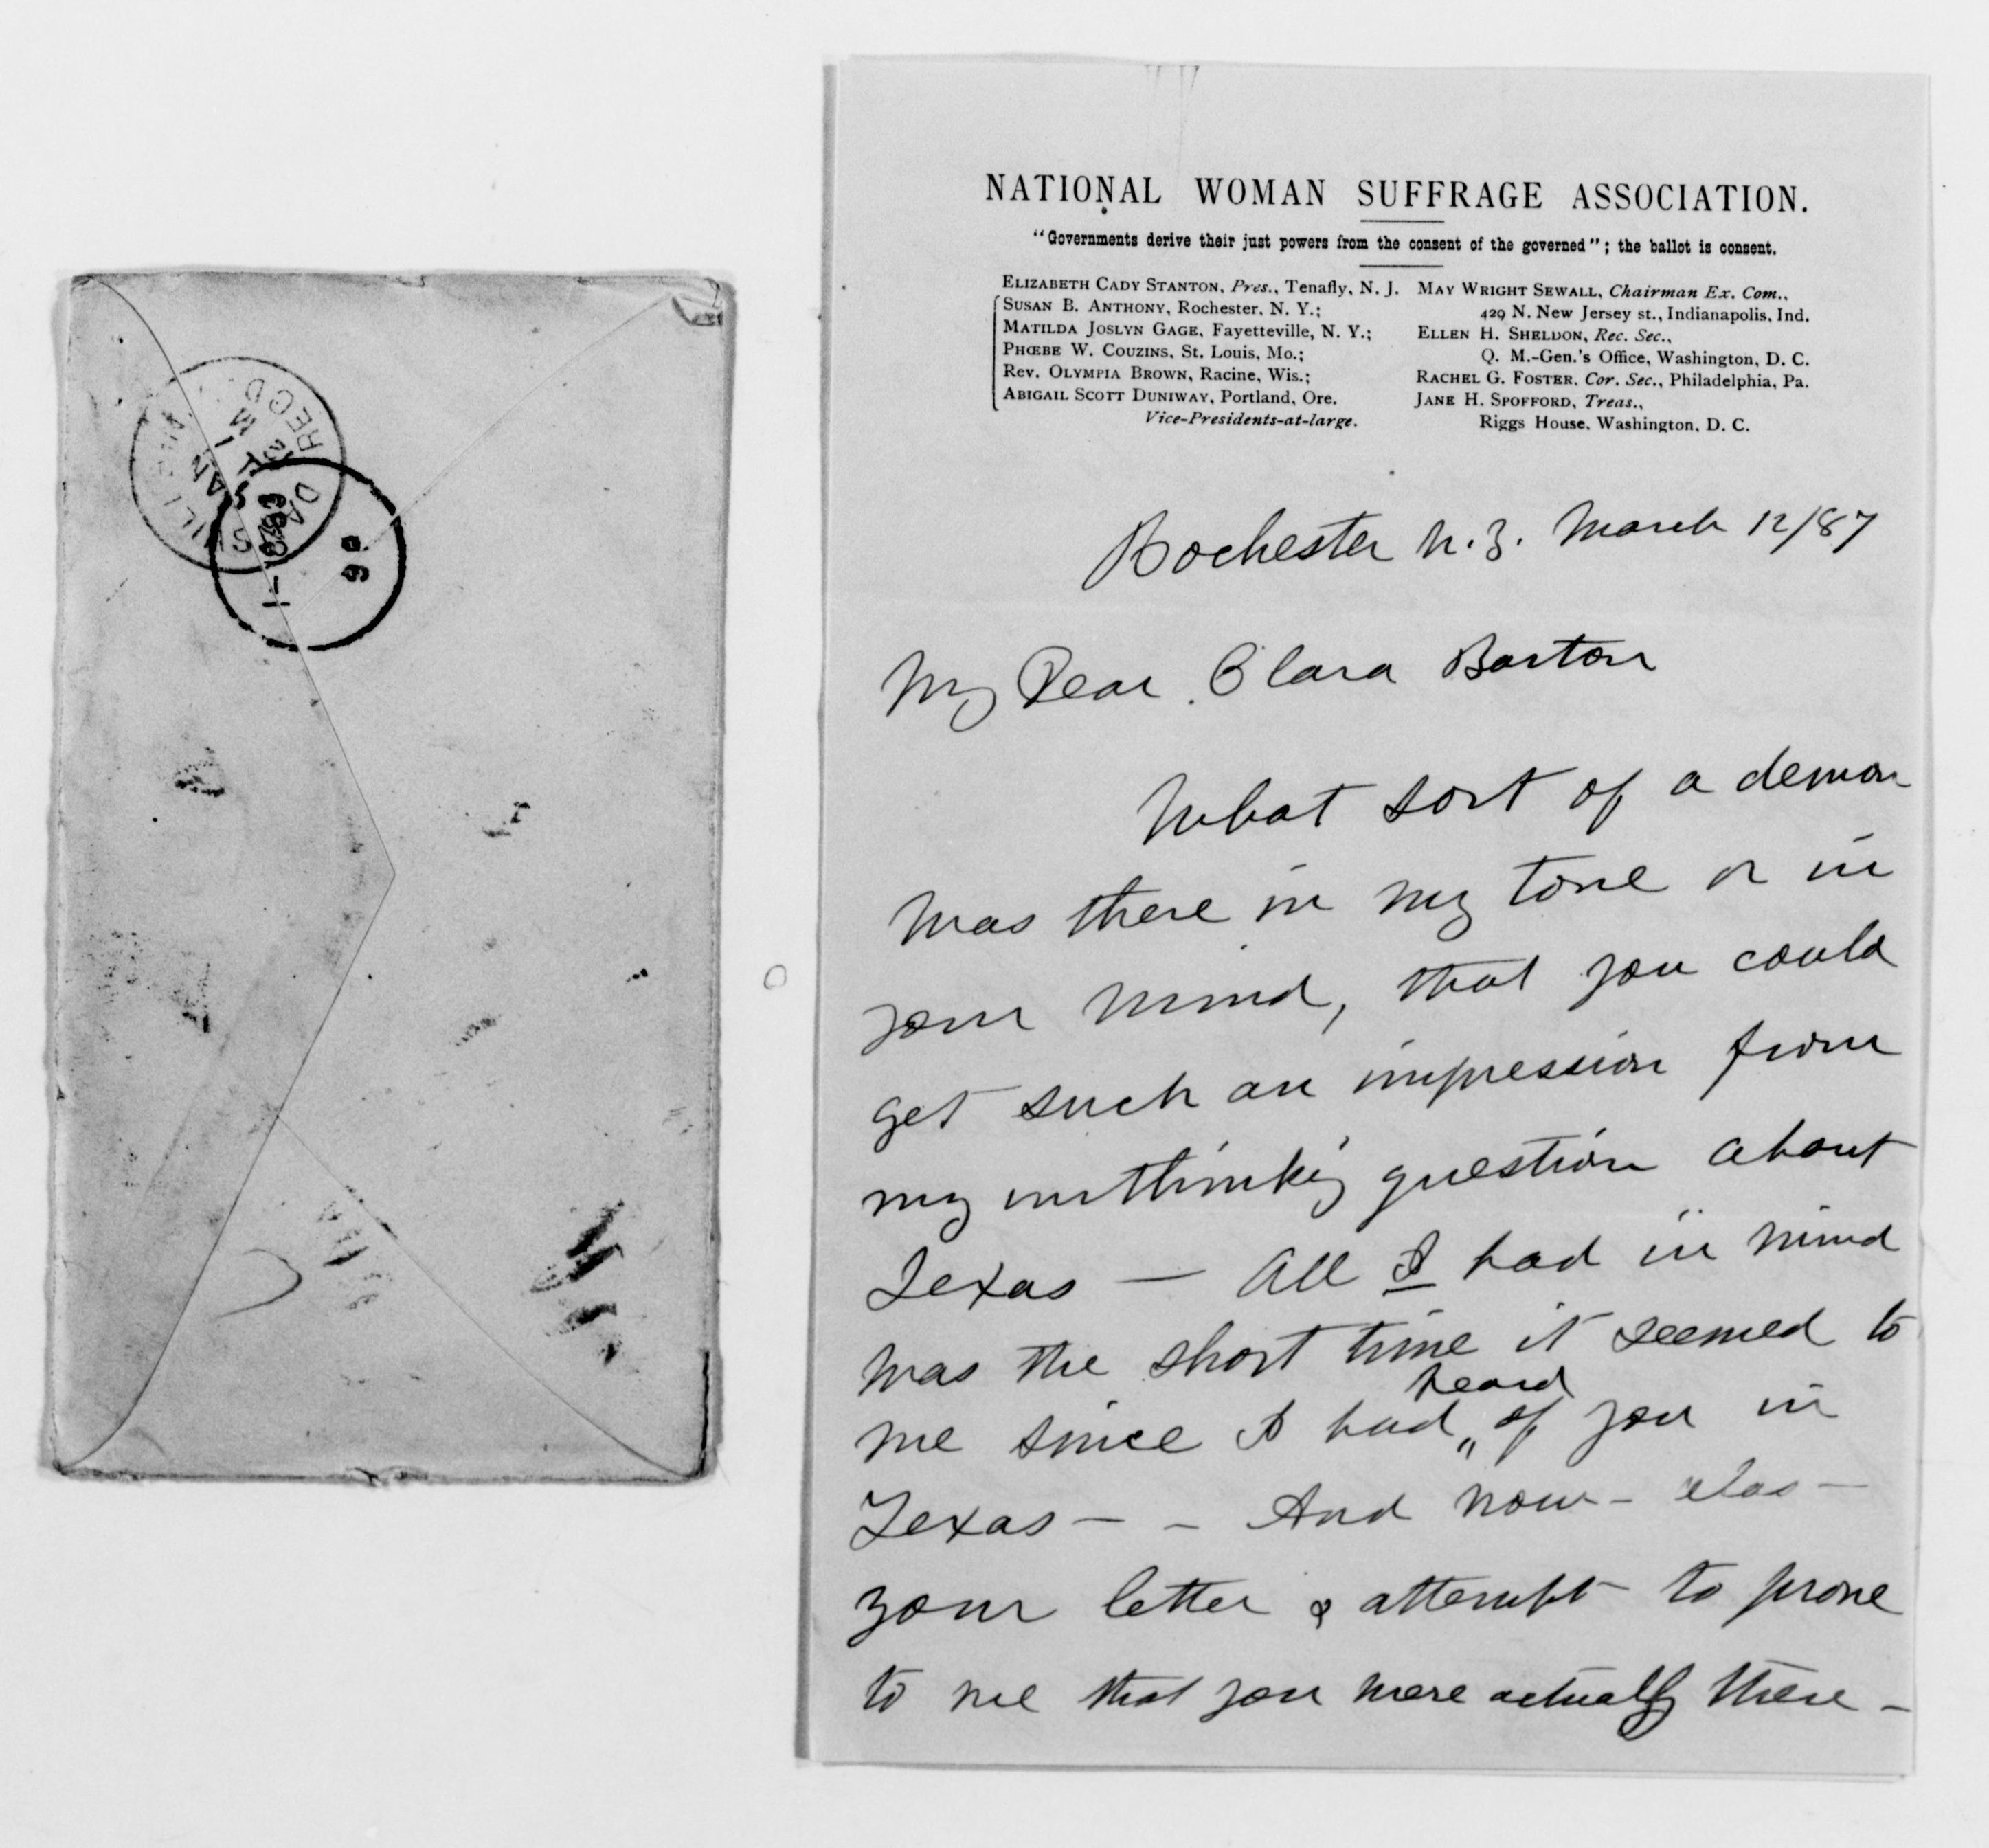 DANSVILLE
JAN
1
REC'D
1893
9 D
NATIONAL WOMAN SUFFRAGE ASSOCIATION.
"Governments derive their just powers from the consent of the governed"; the ballot is consent.
ELIZABETH CADY STANTON, Pres., Tenafly, N. J.
SUSAN B. ANTHONY, Rochester, N. Y.;
MATILDA JOSLYN GAGE, Fayetteville, N. Y.;
PHŒBE W. COUZINS, St. Louis, Mo.;
REV. OLYMPIA BROWN, Racine, Wis.;
ABIGAIL SCOTT DUNIWAY, Portland, Ore.
Vice-Presidents-at-large.
MAY WRIGHT SEWALL, Chairman Ex. Com.,
429 N. New Jersey st., Indianapolis, Ind.
ELLEN H. SHELDON, Rec. Sec.,
Q. M.-Gen.'s Office, Washington, D. C.
RACHEL G. FOSTER, Cor. Sec., Philadelphia, Pa.
JANE H. SPOFFORD, Treas.,
Riggs House, Washington, D. C.
Rochester N.Y. March 12/87
My Dear Clara Barton
What sort of a demon
was there in my tone or in
your mind, that you could
get such an impression from
my unthinking question about
Texas — All I had in mind
was the short time it seemed to
heard
me since I had of you in
Texas - - And now - alas -
your letter & attempt to prove
to me that you were actually there -